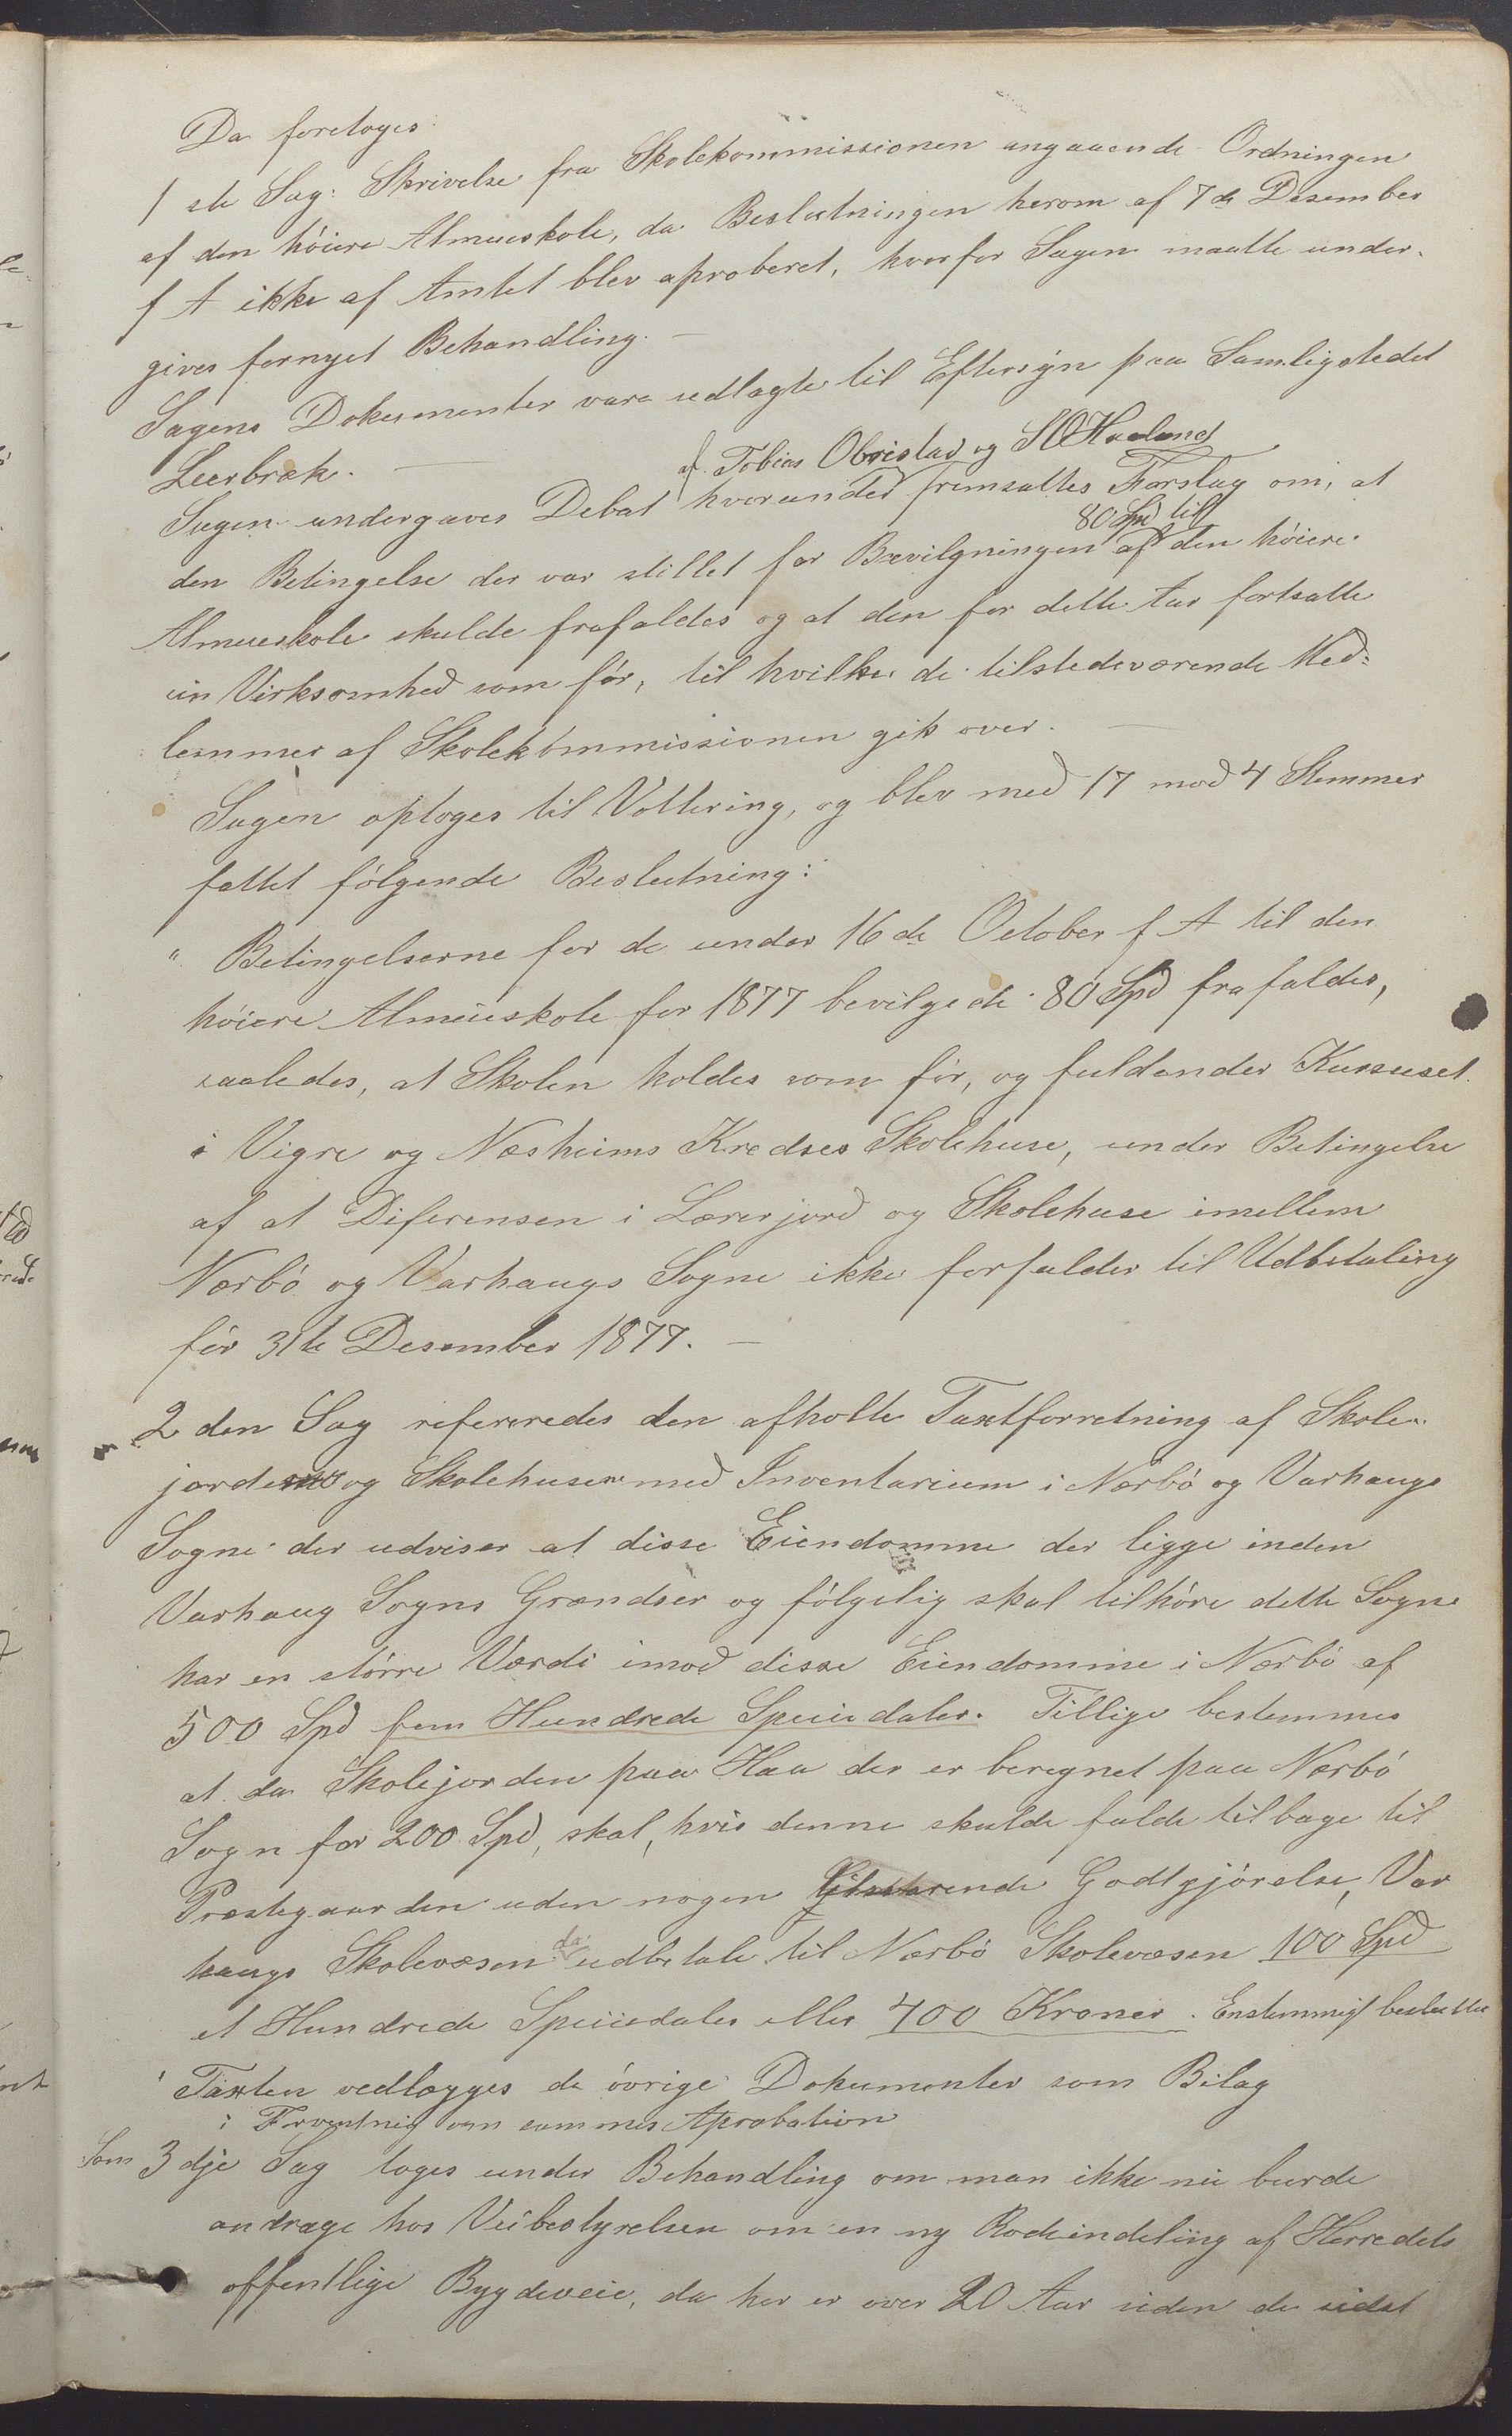 Da foretoges:
1ste Sag: Skrivelse fra Skolekommissionen angaaende Ordningen
af den höiere Almueskole, da Beslutningen herom af 7de Desember
f A ikke af Amtet blev aproberet, hvorfor Sagen maatte under-
gives fornyet Behandling. —
Sagens Dokumenter vare udlagte til Eftersyn paa Samligstedet
Leerbræk. —
af Tobias Obrestad og S O Haaland
Sagen undergaves Debat hvorunder fremsattes Forslag om, at
80 Spd til
den Betingelse der var stillet for Bevilgningen af den höiere
Almueskole skulde frafaldes og at den for dette Aar fortsatte
sin Virksomhed som för, til hvilke de tilstedeværende Med=
lemmer af Skolekommissionen gik over. —
Sagen optoges til Vottering, og blev med 17 mod 4 Stemmer
fattet fölgende Beslutning:
" Betingelserne for de under 16de October f A til den
höiere Almueskole for 1877 bevilgede 80 Spd frafaldes,
saaledes, at Skolen holdes som för, og fuldender Kursuset
i Vigre og Næsheims Kredses Skolehuse, under Betingelse
af at Diferensen i Lærerjord og Skolehuse imellem
Nærbö og Varhaugs Sogne ikke forfalder til Udbetaling
för 31te Desember 1877. —
2den Sag refereredes den afholte Taxtforretning af Skole-
jordene og Skolehusene med Inventarium i Nærbö og Varhaugs
Sogne der udviser at disse Eiendomme der ligge inden
Varhaug Sogns Grændser og fölgelig skal tilhöre dette Sogn
har en större Værdi imod disse Eiendomme i Nærbö af
500 Spd fem Hundrede Speciedaler. Tillige bestemmes
at da Skolejorden paa Haa der er beregnet paa Nærbö
Sogn for 200 Spd, skal, hvis denne skulde falde tilbage til
Præstegaarden uden nogen Godtgjörelse, Var
haugs Skolevæsen da udbetale til Nærbö Skolevæsen 100 Spd
et Hundrede Speciedaler eller 400 Kroner. Enstemmigt besluttet
Taxten vedlægges de övrige Dokumenter som Bilag
i Forventnig om sammes Aprobation
Som 3dje Sag toges under Behandling om man ikke nu burde
andrage hos Veibestyrelsen om en ny Rodeindeling af Herredets
offentlige Bygdeveie, da her er over 20 Aar siden de sidst